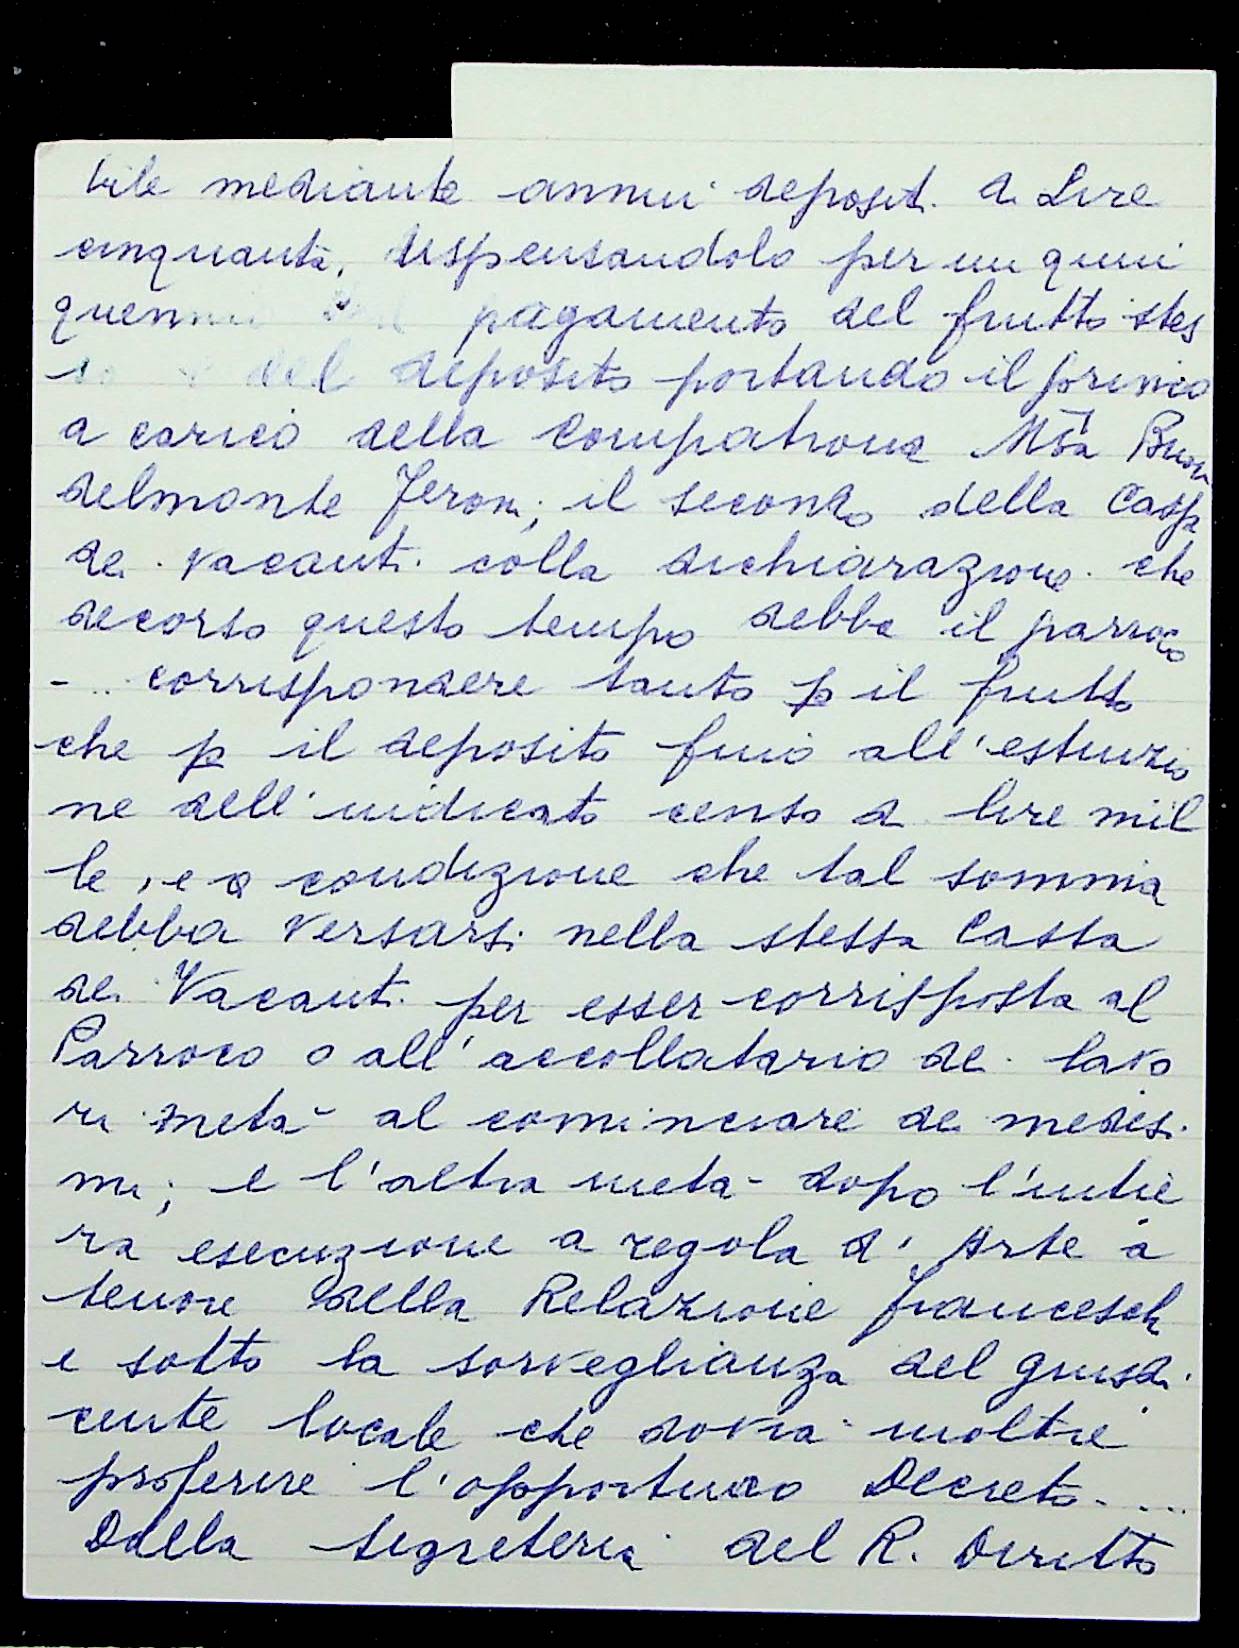 bile mediante annui depositi di Lire
cinquanta, dispensandolo per un quin
quennio dal pagamento del frutto stes
so e del deposito portando il primo
a carico della Compatrona Msa Buon
delmonte Feroni; il secondo della Cassa
dei vacanti colla dichiarazione che
decorso questo tempo debba il parroco
- .. corrispondere tanto p il frutto
che p il deposito fino all'estinzio
ne dell'indicato censo di lire mil
le, e a condizione che tal somma
debba versarsi nella stessa Cassa
dei Vacanti per esser corrisposta al
Parroco o all'accollatario dei lavo
ri metà al cominciare dei medesi
mi; e l'altra metà dopo l'intie
ra esecuzione a regola d'Arte a
tenore della Relazione Franceschi
e sotto la sorveglianza del giusdi
cente locale che dovrà inoltre
proferire l'opportuno Decreto.....
Dalla Segreteria del R. Diritto